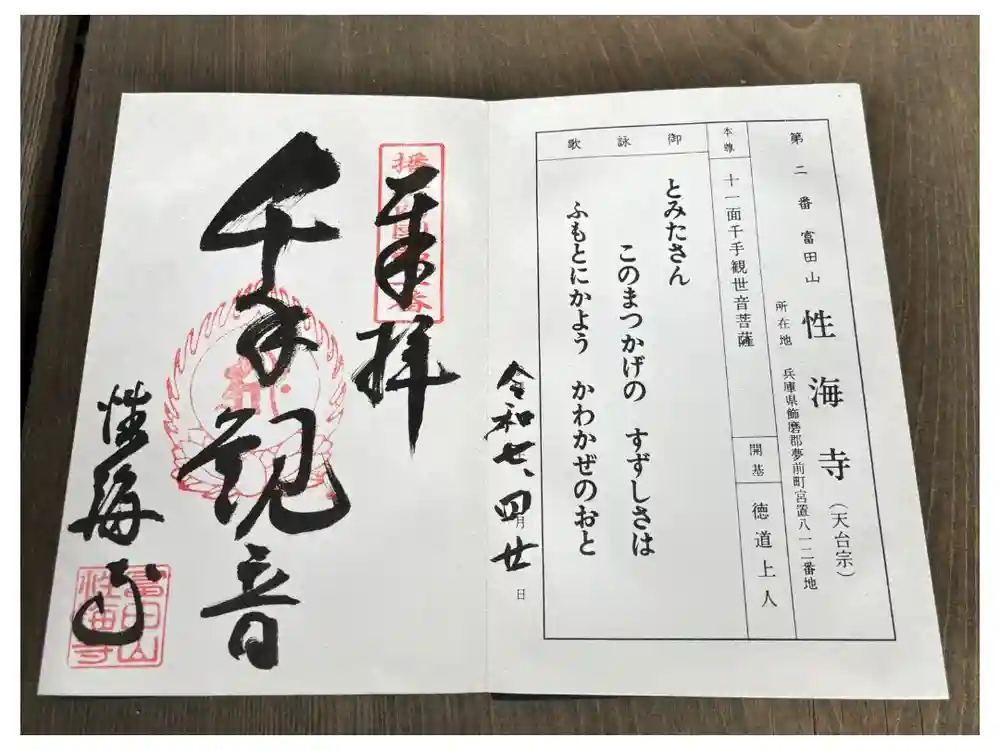 第二番富田山
性海寺(天台宗)
所在地 兵庫県飾磨郡夢前町宮置八一二番地
本尊
十一面千手観世音菩薩
開基
徳道上人
御詠歌
とみたさん
このまつかげの すずしさは
ふもとにかよう かわかぜのおと
令和七、四月廿日
奉拝
千手観音
性海寺
富田山
性海寺